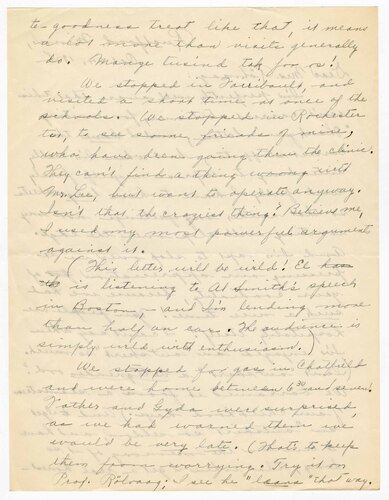 to-goodness treat like that, it means
a lot more than visits generally
do. Mange tusind tak for os!
We stopped in Farribault, and
visited a short time at once of the
schools. We stopped in Rochester
too, to see some friends of mine,
who have been going thru the clinic.
They can't find a thing wrong with
Mr. Lee, but want to operate anyway.
Isn't that the craziest thing? Believe me,
I used my most powerful argument
against it.
(This letter will be wild! El
is listening to Al Smith's speech
in Boston, and I'm lending more
than half an ear. The audience is
simply wild with enthusiasm.)
We stopped for gas in Chatfield
and were home between 6 30 and seven.
Father and Gyda were surprised,
as we had warned them we
would be very late. (That's to keep
them from worrying. Try it on
Prof. Rölvaag; I see he "leans" that way.